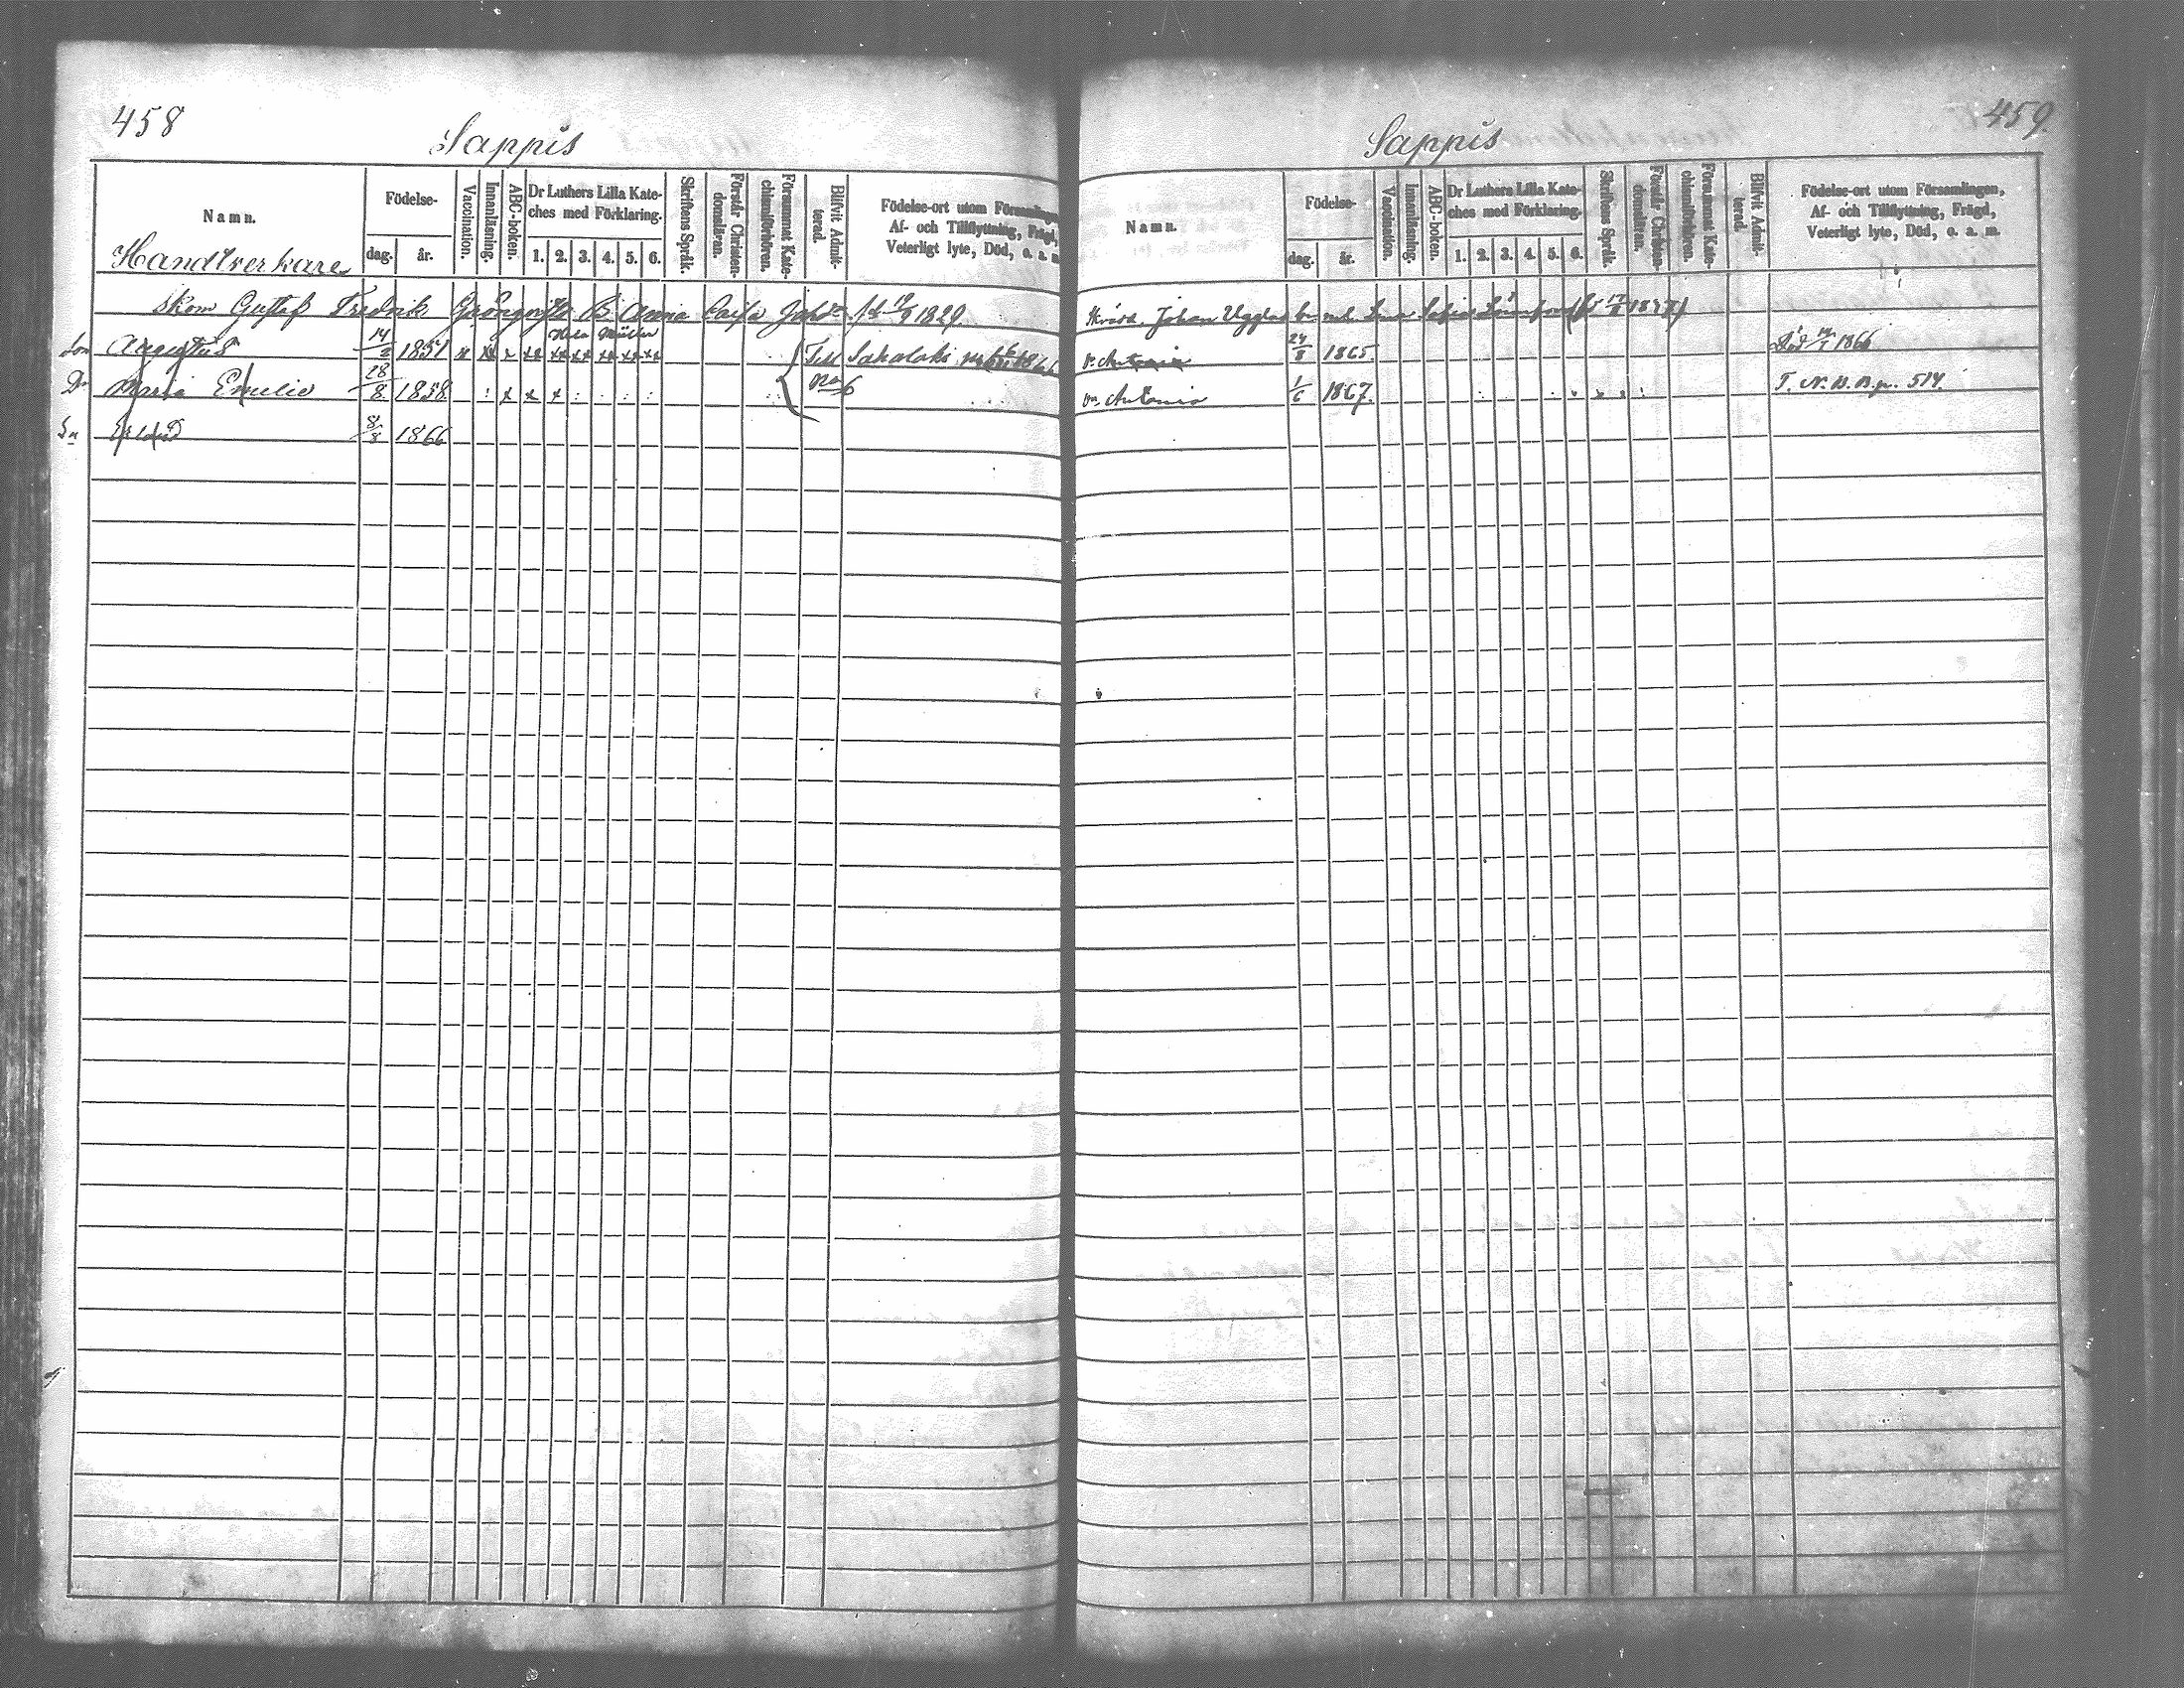 458
Sappis
Namn.
Födelse-
dag.
år.
Vaccination.
Innanläsning.
ABC-boken.
Dr Luthers Lilla Kate-
ches med Förklaring.
1. 2. 3. 4. 5. 6.
Skriftens Språk.
Förstår Christen-
domsläran.
Försummat Kate-
chismiförhören.
Blifvit Admit-
terad.
Födelse-ort utom Församlingen,
Af- och Tillflyttning, Frägd,
Veterligt lyte, Död, o. a. m.
Handtverkare
Skom Gustaf Fredrik Grönqvists B. Anna Caisa 1829.
Son Augustus 14 1851
Dr Maria Emelie 28/8 1858
Sn Erland 8/8 1866
459.
Sappis
Namn.
Födelse-
dag.
år.
Vaccination.
Innanläsning.
ABC-boken.
Dr Luthers Lilla Kate-
ches med Förklaring.
1. 2. 3. 4. 5. 6.
Skriftens Språk.
Förstår Christen-
domsläran.
Försummat Kate-
chismiförhören.
Blifvit Admit-
terad.
Födelse-ort utom Församlingen,
Af- och Tillflyttning, Frägd,
Veterligt lyte, Död, o. a. m.
Johan Ugglas
1865. Död 1866
Antonia 1/6 1867. T. N. B. B. p. 514.